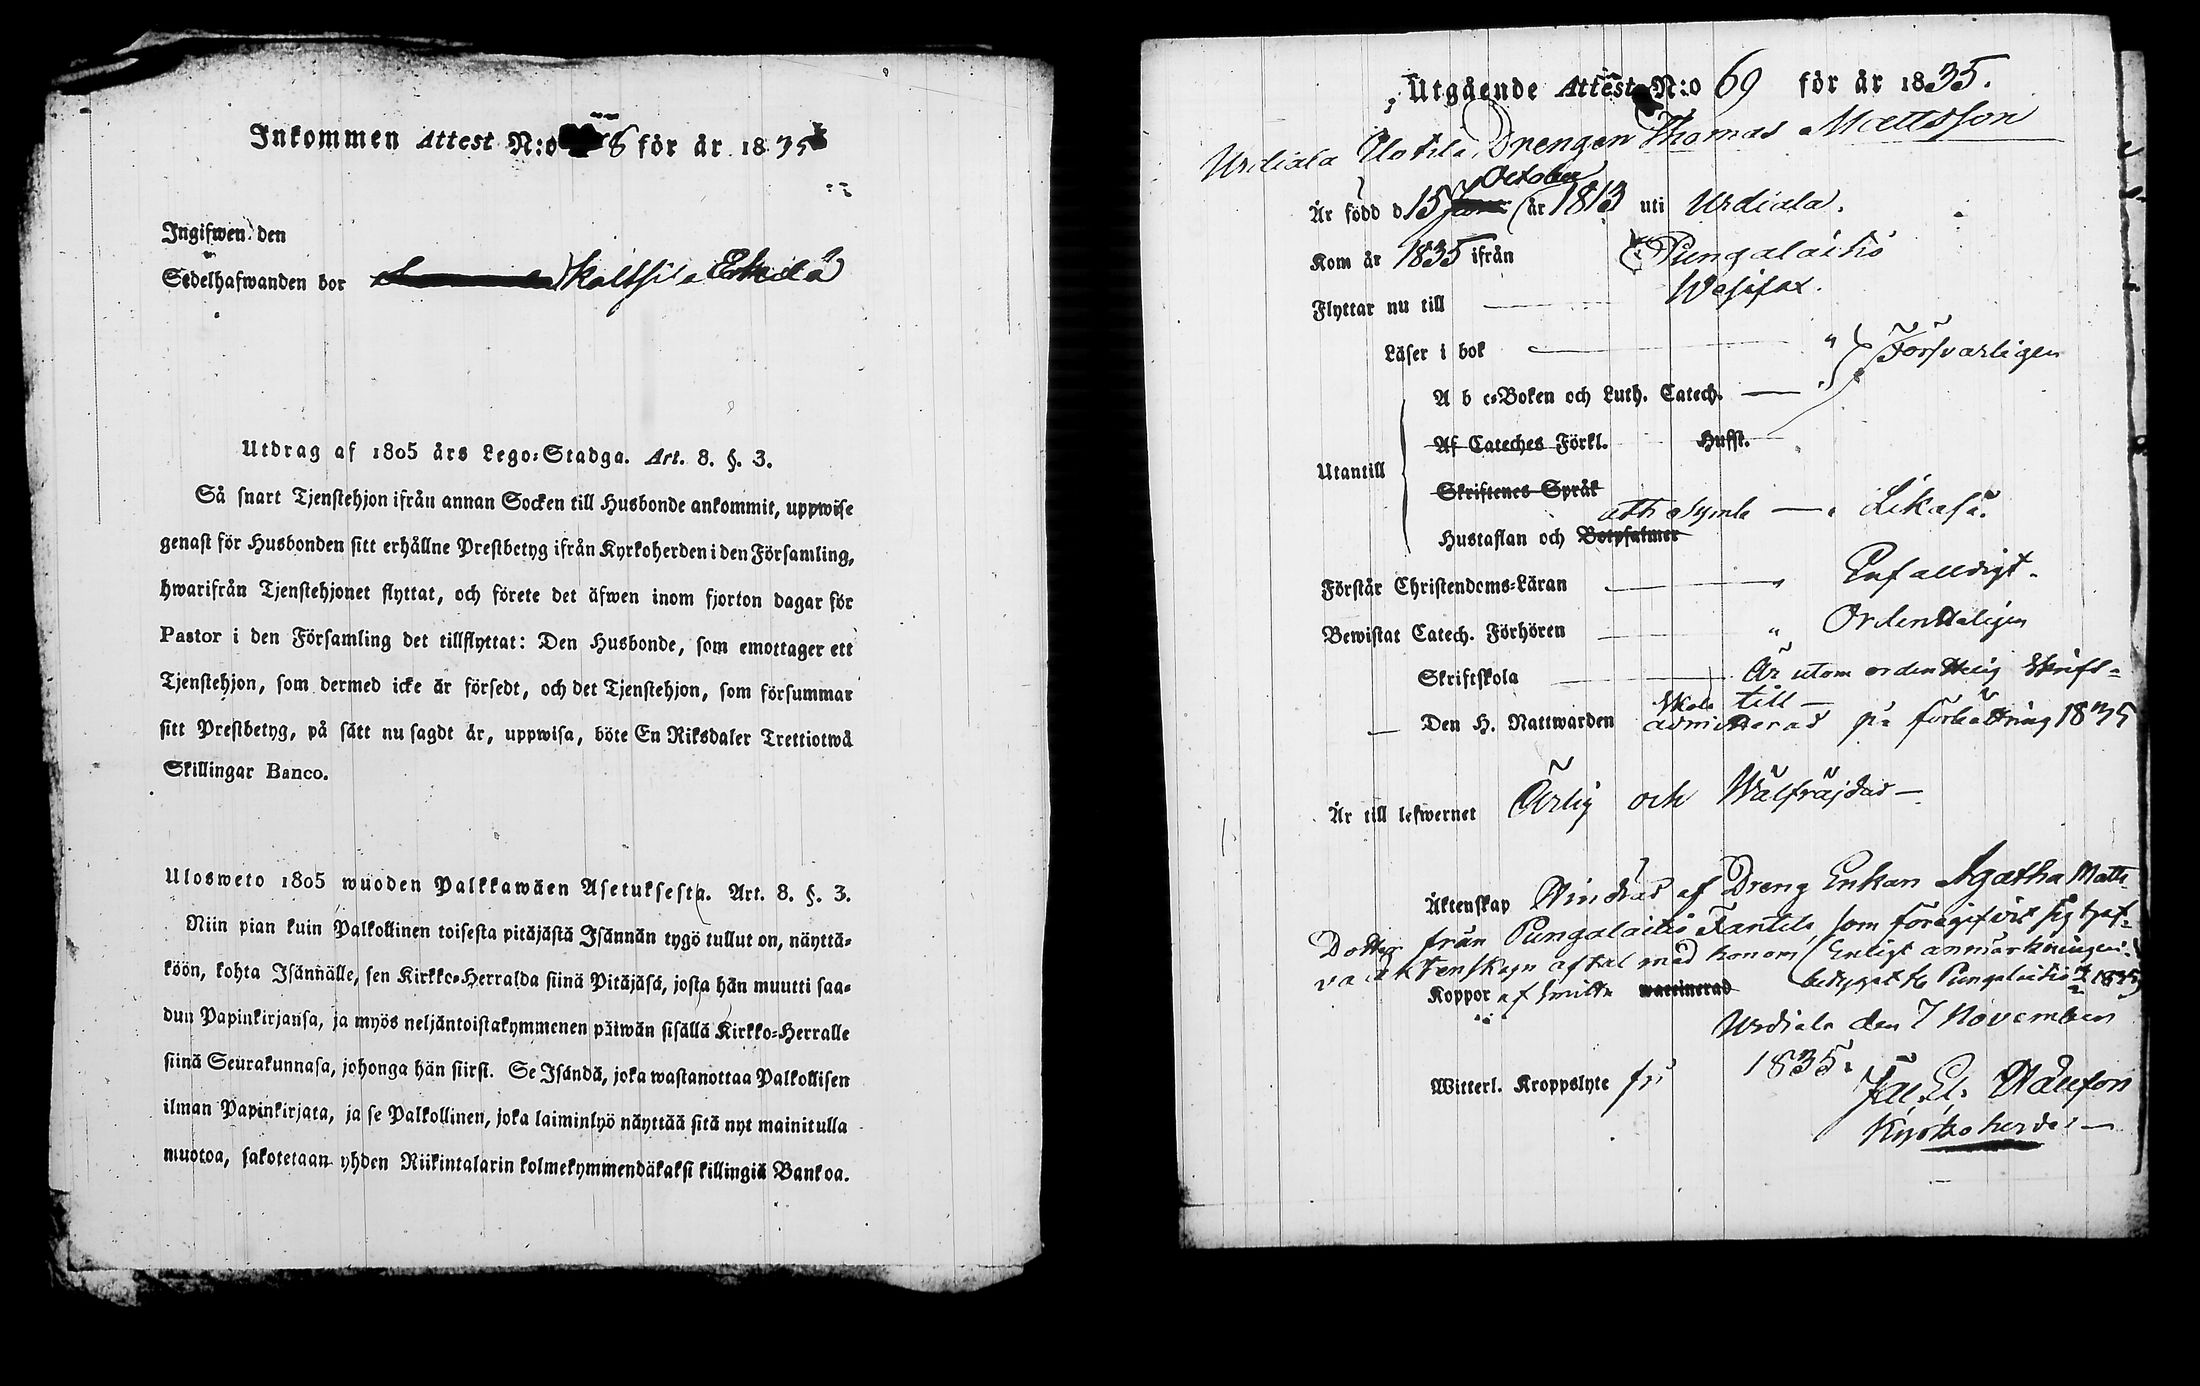 Inkommen Attest N:o 8 för år 1835
Ingifwen den
Sedelhafwanden bor Skaltsila Erkilä
Utdrag af 1805 års Lego-Stadga. Art. 8. §. 3.
Så snart Tjenstehjon ifrån annan Socken till Husbonde ankommit, uppwise
genast för Husbonden sitt erhållne Prestbetyg ifrån Kyrkoherden i den Församling,
hwarifrån Tjenstehjonet flyttat, och förete det äfwen inom fjorton dagar för
Pastor i den Församling det tillflyttat: Den Husbonde, som emottager ett
Tjenstehjon, som dermed icke är försedt, och det Tjenstehjon, som försummar
sitt Prestbetyg, på sätt nu sagdt är, uppwisa, böte En Riksdaler Trettiotwå
Skillingar Banco.
Ulosweto 1805 wuoden Palkkawäen Asetuksesta. Art. 8. §. 3.
Niin pian kuin Palkollinen toisesta pitäjästä Isännän tygö tullut on, näyttä-
köön, kohta Isännälle, sen Kirkko-Herralda siinä Pitäjäsä, josta hän muutti saa-
dun Papinkirjansa, ja myös neljäntoistakymmenen päiwän sisällä Kirkko-Herralle
siinä Seurakunnasa, johonga hän siirsi. Se Isändä, joka wastanottaa Palkollisen
ilman Papinkirjata, ja se Palkollinen, joka laiminlyö näyttää sitä nyt mainitulla
muotoa, sakotetaan yhden Riikintalarin kolmekymmendäkaksi killingiä Bankoa.
Utgående Attest N:o 69 för år 1835.
Urdiala Uotila Drengen Thomas Mattsson
October
Är född d 15 år 1813 uti Urdiala.
Kom år 1835 ifrån Pungalaitio
Flyttar nu till Wesifax.
Läser i bok " Försvarligen
A b c-Boken och Luth. Catech.
Af Cateches Förkl. Hufst.
Utantill
Skriftenes Språk
ath. Symb.
Hustaflan och Botpsalmer Likaså.
Förstår Christendoms-Läran Enfalldigt.
Bewistat Catech. Förhören " Ordentteligen
Skriftskola Är utom ordenttelig Skrift-
skola till
Den H. Nattwarden admitterad på förbättring 1835
Är till lefwernet Ärlig och Wälfräjdad
Äktenskap Hindrad af Dreng Enkan Agatha Matts
Dotter från Pungalaitio Fantila, som föregifvit sig haf-
va äktenskaps aftal med honom (Enligt anmärkningen i
betyget fr Pungalaitio 1835)
Koppor af smitta waccinerad
Urdiala den 7 November
1835.
Witterl. Kroppslyte fri
Kyrkoherde